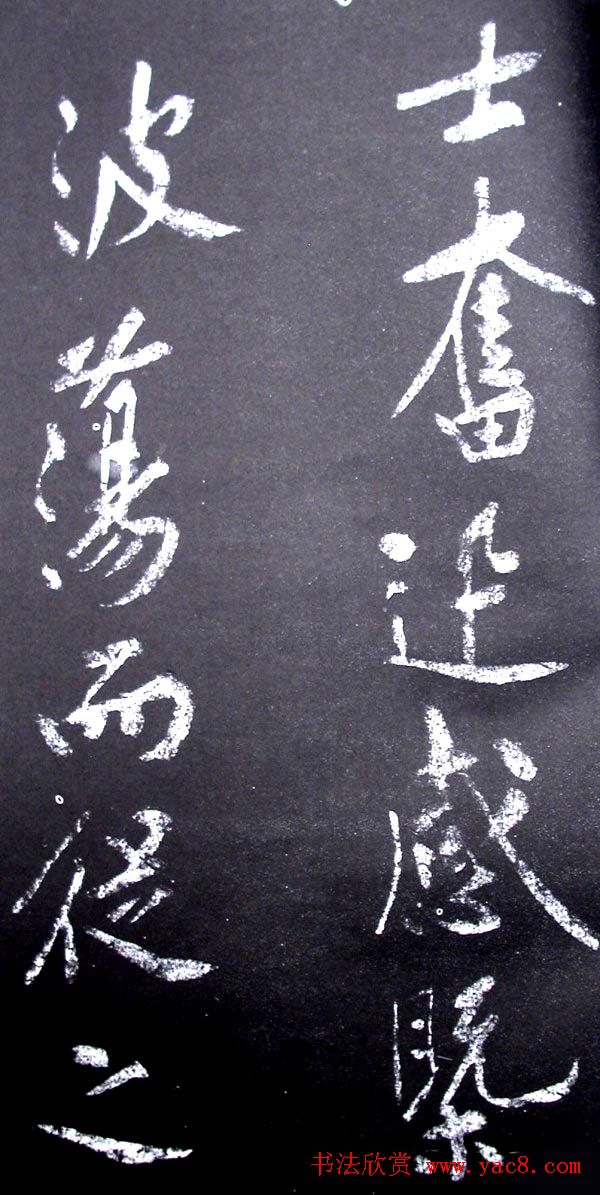 士奮迅感槩
波蕩而從之
书法欣赏 www.yac8.com